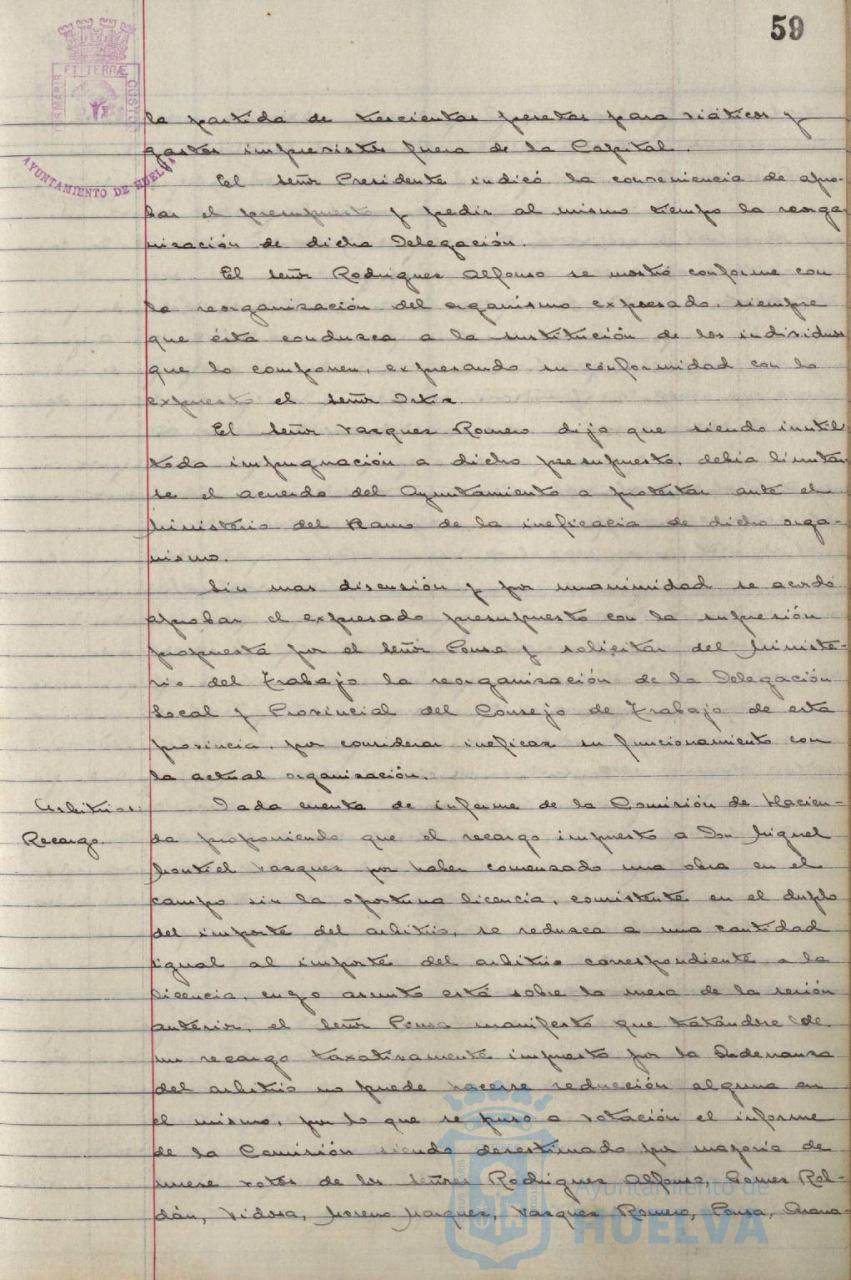 59
ET TERRÆ
CUSTOD
AYUNTAMIENTO DE HUELVA
la partida de trescientas pesetas para viáticos y
gastos imprevistos fuera de la Capital.
El señor Presidente indicó la conveniencia de apro-
bar el presupuesto y pedir al mismo tiempo la reorga-
nización de dicha Delegación.
El señor Rodriguez Alfonso se mostró conforme con
la reorganización del organismo expresado, siempre
que ésta conduzca a la sustitución de los individuos
que lo componen, expresando su conformidad con lo
expuesto el señor
El señor Vazquez Romero dijo que siendo inutil
toda impugnación a dicho presupuesto, debia limitar-
se el acuerdo del Ayuntamiento a protestar ante el
Ministerio del Ramo de la ineficacia de dicho orga-
nismo.
Sin mas discusión y por unanimidad se acordó
aprobar el expresado presupuesto con la supresión
propuesta por el señor Ponsa y solicitar del Ministe-
rio del Trabajo la reorganización de la Delegación
Local y Provincial del Consejo de Trabajo de esta
provincia, por considerar ineficaz su funcionamiento con
la actual organización.
Arbitrios.
Recargo.
Dada cuenta de informe de la Comisión de Hacien-
da proponiendo que el recargo impuesto a Don Miguel
Montiel Vazquez por haber comenzado una obra en el
campo sin la oportuna licencia, consistente en el duplo
del importe del arbitrio, se reduzca a una cantidad
igual al importe del arbitrio correspondiente a la
licencia, cuyo asunto está sobre la mesa de la sesión
anterior, el señor Ponsa manifestó que tratándose de
un recargo taxativamente impuesto por la Ordenanza
del arbitrio no puede hacerse reducción alguna en
el mismo, por lo que se puso a votación el informe
de la Comisión siendo desestimado por mayoría de
nueve votos de los señores Rodriguez Alfonso, Gomez Rol-
dán, Vidosa, Moreno Marquez, Vazquez Romero, Ponsa,
Ayuntamiento de
HUELVA